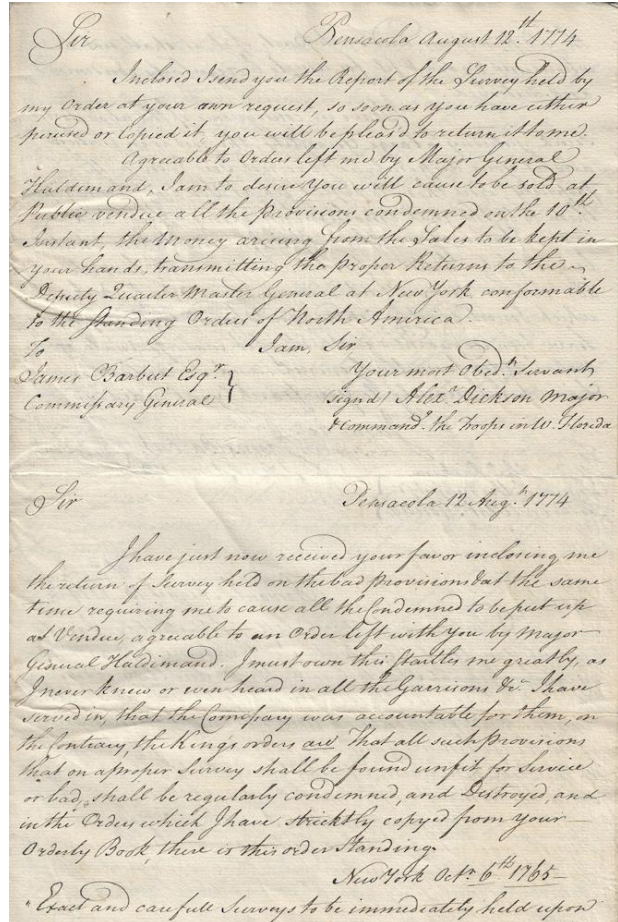 Sir Pensacola August 12.th 1774
Inclosed I send you the Report of the Survey held by
my Order at your own request, so soon as you have either
perused or Copied it, you will be pleas'd to return it to me.
Agreable to Orders left me by Major General
Haldimand, I am to desire you will cause to be sold at
Public vendue all the provisions condemned on the 10th.
Instant, the Money arising from the Sales to be kept in
your hands, transmitting the proper Returns to the
Deputy Quarter Master General at New York conformable
to the Standing Orders of North America.
To I am, Sir
James Barbut Esqr. Your most Obedt. Servant
Commissary General signd/ Alexr. Dickson Major
& Commandg. the Troops in W. Florida
Sir Pensacola 12 Augt. 1774
I have just now received your favor inclosing me
the return of Survey held on the bad provisions & at the same
time requiring me to cause all the Condemned to be put up
at Vendue, agreable to an Order left with You by Major
General Haldimand. I must own this Startles me greatly, as
I never knew or even heard in all the Garrisons &c. I have
served in, that the Company was accountable for them, on
the Contrary, the King's orders are That all such provisions
that on a proper Survey shall be found unfit for Service
or bad, shall be regularly condemned, and Destroyed, and
in the Orders which I have stricktly copyed from your
Orderly Book, there is this order Standing.
New York Octr. 6th 1765
"Exact and carefull Surveys to be immediately held upon